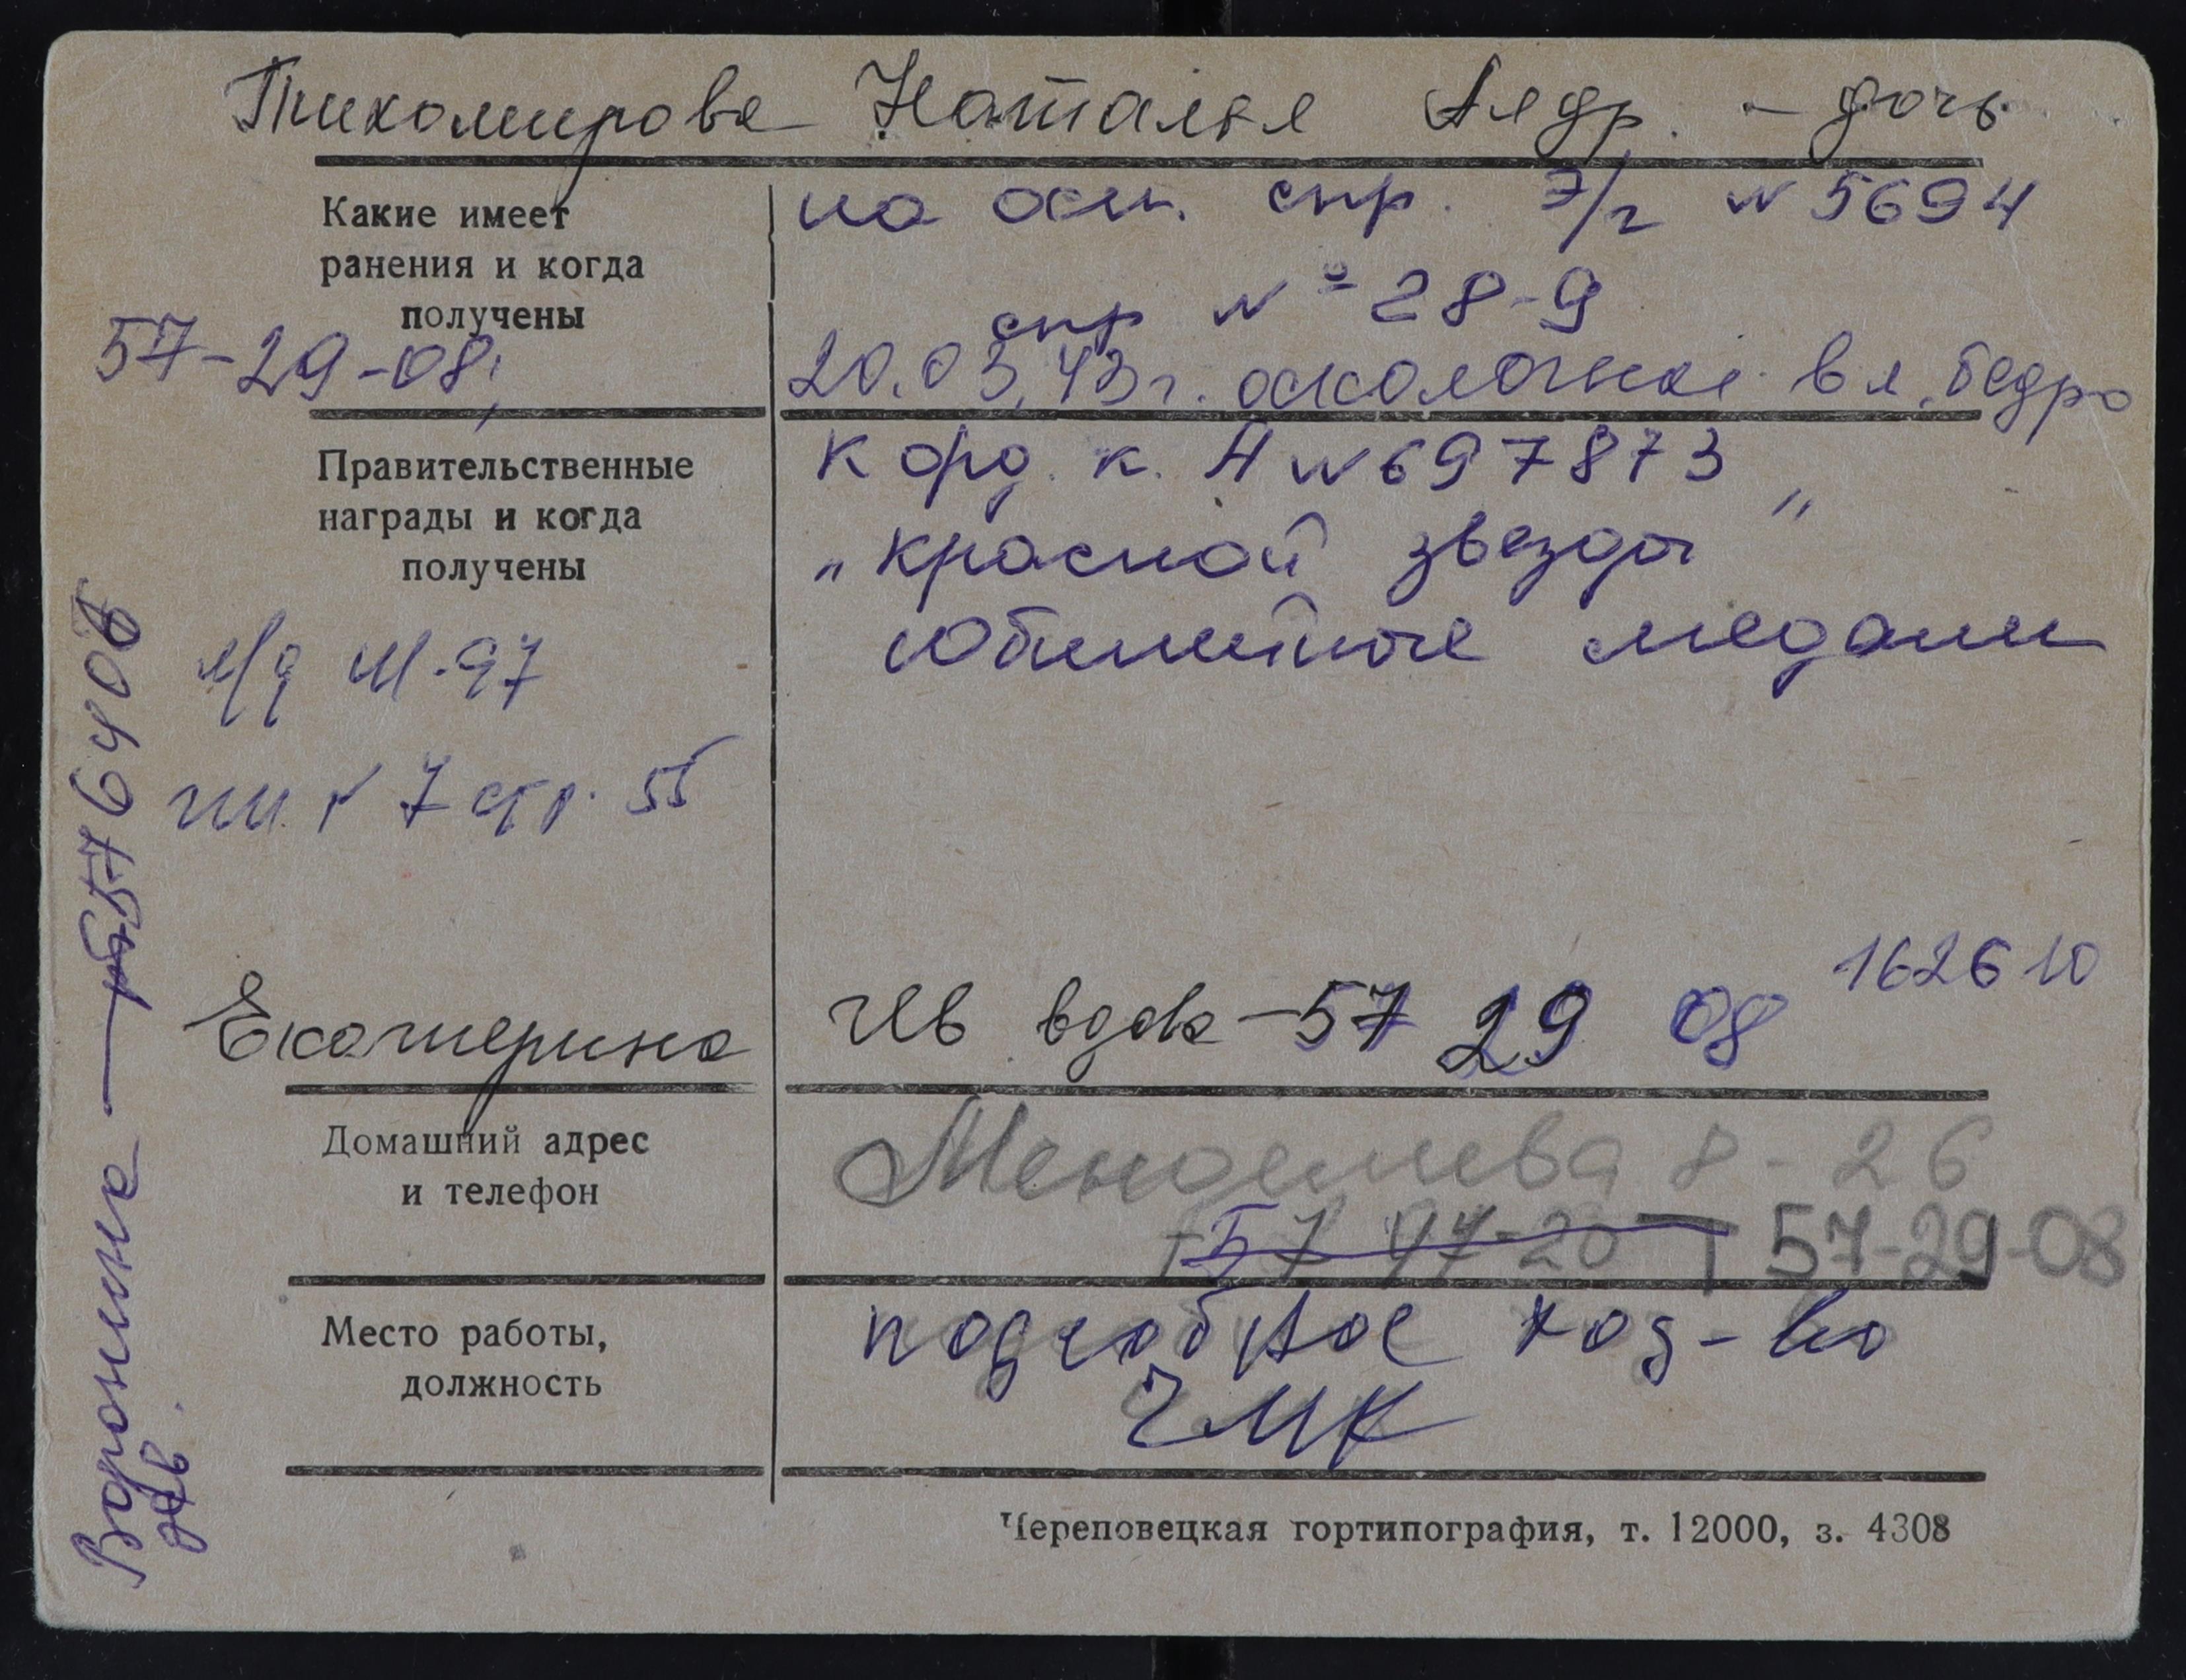 Тихомирова Наталья Алдр. - дочь
Какие имеет
ранения и когда
получены
57-29-08,
на осн. спр. Э/г N 5694
спр Nº 28-9
20.03.43г. осколочное в л. бедро
Правительственные
награды и когда
получены
К орд. к. А N 697873
„красной звезды"
Юбилейные медали
М-97
N 7 стр. 55
162610
Екатерина
Ив вдова - 57 29 08
Домашний адрес
и телефон
Менделеева 8-26
т 57 47-20 т 57-29-08
Место работы,
должность
подсобное хоз-во
ЧМК
Череповецкая гортипография, т. 12000, з. 4308
Воронина — 576408